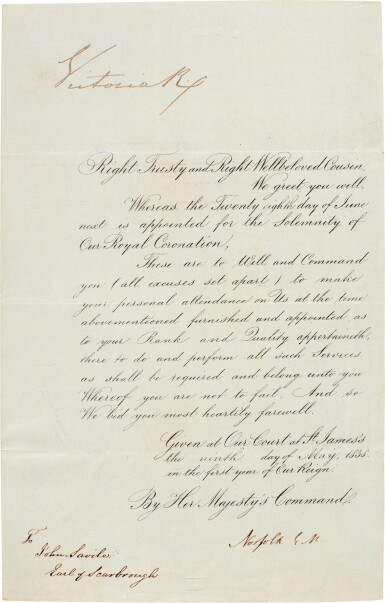 Victoria R.
Right Trusty and Right Wellbeloved Cousin,
We greet you well.
Whereas the Twenty eighth day of June
next is appointed for the Solemnity of
Our Royal Coronation,
These are to Will and Command
you (all excuses set apart) to make
your personal attendance on Us at the time
abovementioned furnished and appointed as
to your Rank and Quality appertaineth,
there to do and perform all such Services
as shall be required and belong unto you
Whereof you are not to fail. And so
We bid you most heartily farewell.
Given at Our Court at St. James's
the ninth day of May, 1838.
in the first year of Our Reign.
By Her Majesty's Command.
Norfolk E. M.
To
John Savile
Earl of Scarbrough